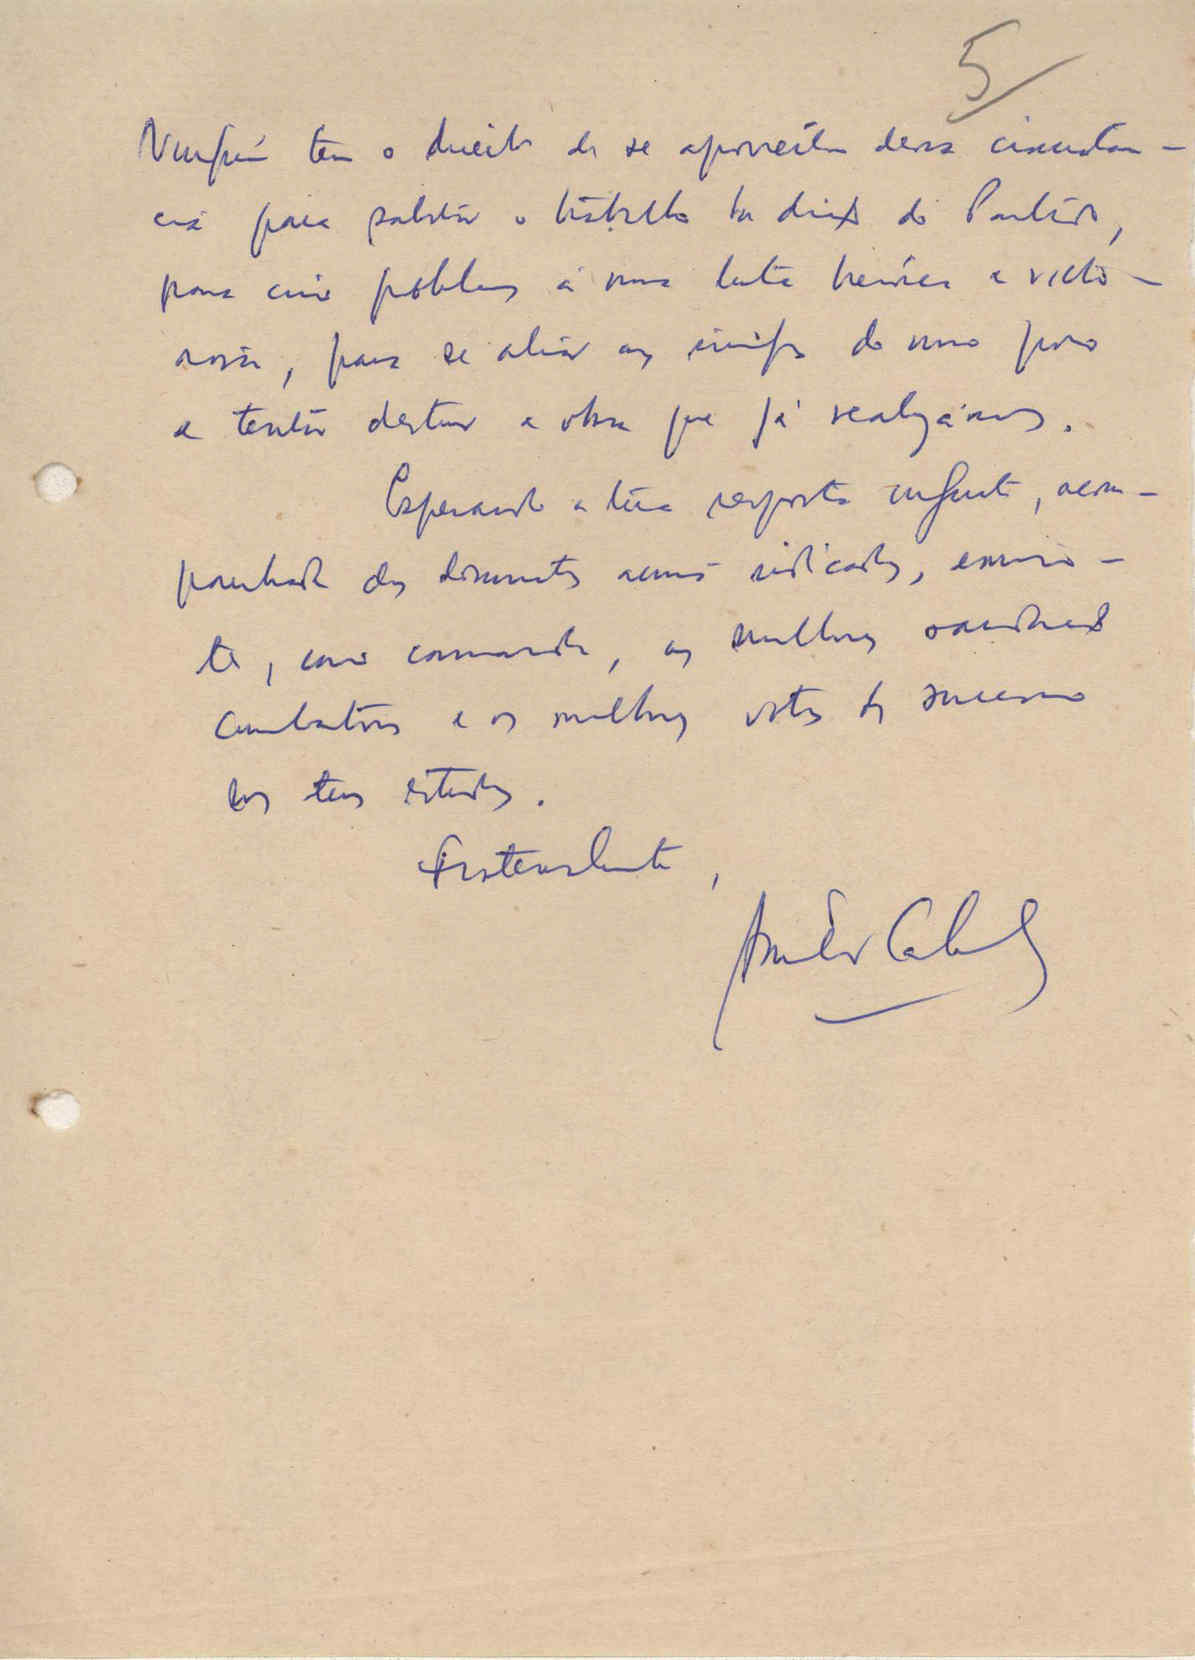 5
Ninguém tem o direito de se aproveitar dessa circunstân-
cia para sabotar o trabalho da direcção do Partido,
para criar problemas à nossa luta heróica e victo-
riosa, para se aliar aos inimigos do nosso povo
e tentar destruir a obra que já realizámos.
Esperando a tua resposta urgente, acom-
panhada dos documentos acima indicados, envio-
te, como camarada, as melhores saudações
combativas e os melhores votos de sucesso
nos teus estudos.
Fraternalmente,
Amílcar Cabral